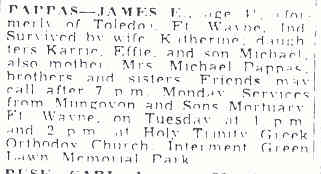 PAPPAS—JAMES E., age
merly of Toledo, Ft. Wayne, Ind.
Survived by wife, Katherine, daugh
ters Karrie, Effie, and son Michael,
also mother, Mrs. Michael Pappas,
brothers and sisters. Friends may
call after 7 p.m. Monday. Services
from Mungovan and Sons Mortuary
Ft. Wayne, on Tuesday at 1 p.m.
and 2 p.m. at Holy Trinity Greek
Orthodox Church. Interment Green
Lawn Memorial Park.